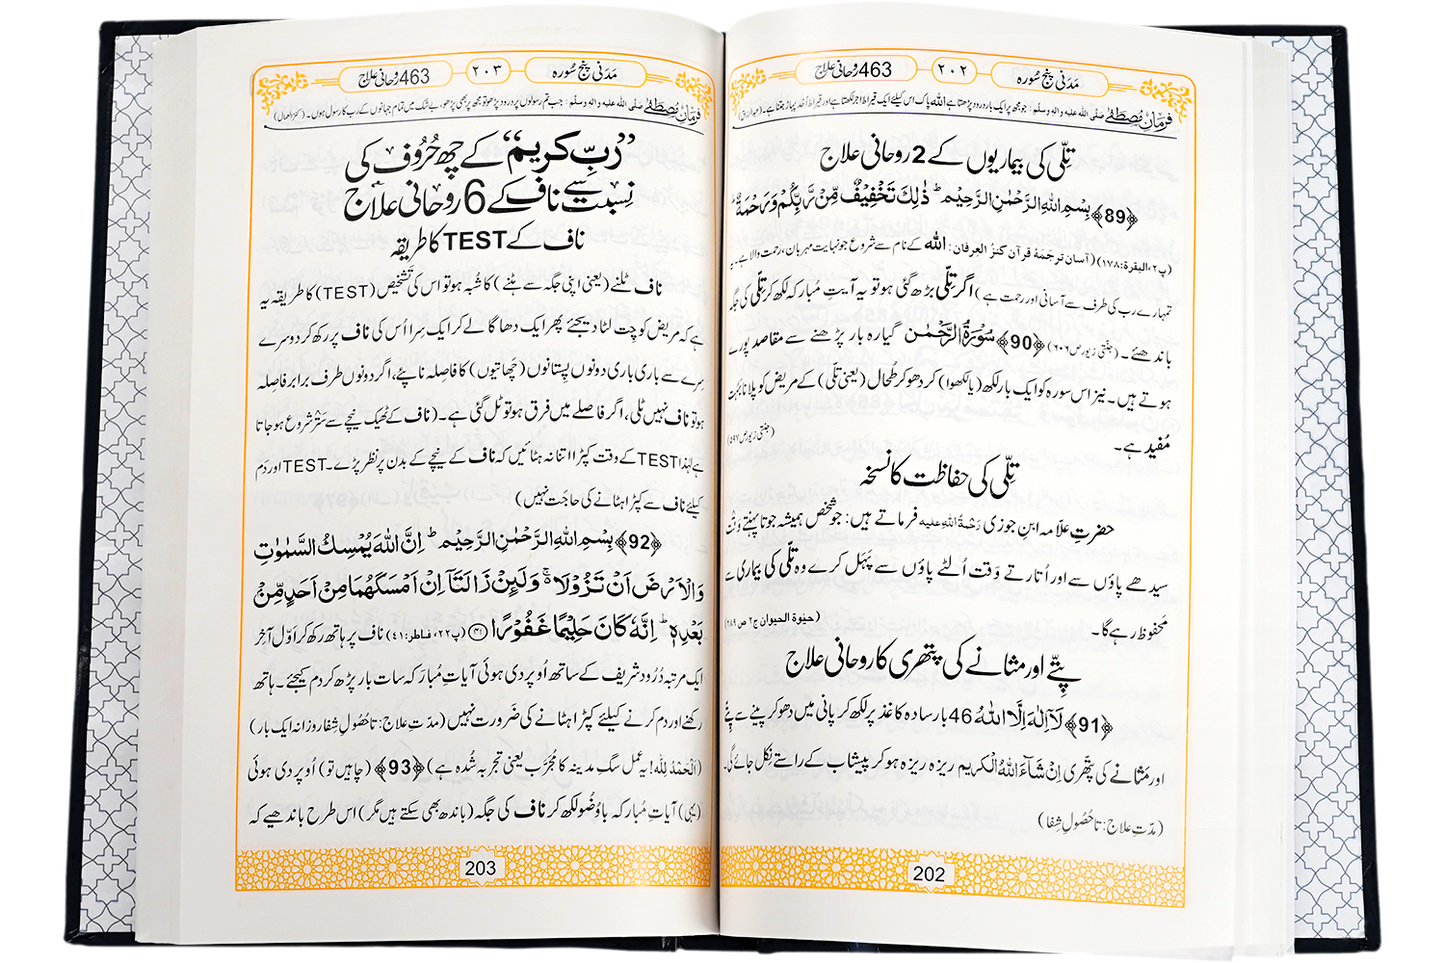 مَدَنی پنج سُورہ
۲۰۲
463 رُوحانی علاج
فرمانِ مصطفےٰ صلی اللہ علیہ والہ وسلم : جو مجھ پر ایک بار درود پڑھتا ہے اللہ پاک اس کیلئے ایک قیراط اجر لکھتا ہے اور قیراط اُحُد پہاڑ جتنا ہے۔
تِلّی کی بیماریوں کے 2 روحانی علاج
﴿89﴾ بِسْمِ اللّٰهِ الرَّحْمٰنِ الرَّحِیْمِ ؕ ذٰلِكَ تَخْفِیْفٌ مِّنْ رَّبِّكُمْ وَ رَحْمَةٌ ؕ
(پ۲،البقرۃ:۱۷۸) (آسان ترجَمۂ قرآن کنزُ العِرفان: اللہ کے نام سے شروع جو نہایت مہربان، رحمت والا ہے۔ یہ
تمہارے رب کی طرف سے آسانی اور رحمت ہے) اگر تِلّی بڑھ گئی ہو تو یہ آیتِ مُبارَکہ لکھ کر تِلّی کی جگہ
باندھئے۔ (جنّتی زیور ص۶۰۶) ﴿90﴾ سُوْرَۃُ الرَّحْمٰن گیارہ بار پڑھنے سے مقاصد پورے
ہوتے ہیں۔ نیز اس سورہ کو ایک بار لکھ (یا لکھوا) کر دھو کر طحال (یعنی تلّی) کے مریض کو پلانا بَہُت
مُفید ہے۔ (جنّتی زیور ص۵۹۷)
تِلّی کی حفاظت کا نسخہ
حضرتِ علّامہ ابنِ جوزی رَحْمَۃُ اللہِ عَلَیْہ فرماتے ہیں: جو شخص ہمیشہ جوتا پہنتے وَقْت
سیدھے پاؤں سے اور اُتارتے وقت اُلٹے پاؤں سے پَہَل کرے وہ تِلّی کی بیماری سے
مَحفوظ رہے گا۔ (حیٰوۃ الحیوان ج۲ ص۲۸۹)
پِتّے اور مثانے کی پتھری کا روحانی علاج
﴿91﴾ لَآ اِلٰهَ اِلَّا اللّٰهُ 46 بار سادہ کاغذ پر لکھ کر پانی میں دھو کر پینے سے پتّے
اور مَثانے کی پتّھری اِنْ شَآءَ اللہُ الْکَرِیم ریزہ ریزہ ہو کر پیشاب کے راستے نِکل جائے گی۔
(مدّتِ علاج: تا حُصُولِ شِفا)
202
مَدَنی پنج سُورہ
۲۰۳
463 رُوحانی علاج
فرمانِ مصطفےٰ صلی اللہ علیہ والہ وسلم : جب تم رسولوں پر درود پڑھو تو مجھ پر بھی پڑھو، بے شک میں تمام جہانوں کے رب کا رسول ہوں۔ (کنز العمال)
”ربِّ کریم“ کے چھ حُرُوف کی
نِسبت سے ناف کے 6 روحانی علاج
ناف کے TEST کا طریقہ
ناف ٹلنے (یعنی اپنی جگہ سے ہٹنے) کا شُبہ ہو تو اس کی تَشخیص (TEST) کا طریقہ یہ
ہے کہ مریض کو چِت لٹا دیجئے پھر ایک دھاگا لے کر ایک سِرا اُس کی ناف پر رکھ کر دوسرے
سِرے سے باری باری دونوں پِستانوں (چھاتیوں) کا فاصِلہ ناپئے، اگر دونوں طرف برابر فاصِلہ
ہو تو ناف نہیں ٹلی، اگر فاصلے میں فرق ہو تو ٹل گئی ہے۔ (ناف کے ٹھیک نیچے سے سَتْر شروع ہو جاتا
ہے لہٰذا TEST کے وقت کپڑا اتنا نہ ہٹائیں کہ ناف کے نیچے کے بدن پر نظر پڑے۔ TEST اور دَم
کیلئے ناف سے کپڑا ہٹانے کی حاجَت نہیں)
﴿92﴾ بِسْمِ اللّٰهِ الرَّحْمٰنِ الرَّحِیْمِ ؕ اِنَّ اللّٰهَ یُمْسِكُ السَّمٰوٰتِ
وَ الْاَرْضَ اَنْ تَزُوْلَا ۚ۬ وَ لَىِٕنْ زَالَتَاۤ اِنْ اَمْسَكَهُمَا مِنْ اَحَدٍ مِّنْۢ
بَعْدِهٖ ؕ اِنَّهٗ كَانَ حَلِیْمًا غَفُوْرًا ﴿۴۱﴾ (پ۲۲، فاطر:۴۱) ناف پر ہاتھ رکھ کر اوّل آخِر
ایک مرتبہ دُرُود شریف کے ساتھ اُوپر دی ہوئی آیاتِ مُبارَکہ سات بار پڑھ کر دم کیجئے۔ ہاتھ
رکھنے اور دم کرنے کیلئے کپڑا ہٹانے کی ضَرورت نہیں (مدّتِ علاج: تا حُصُولِ شِفا روزانہ ایک بار)
(اَلْحَمْدُ لِلّٰہ! یہ عمل سگِ مدینہ کا مُجَرَّب یعنی تجرِبہ شُدہ ہے) ﴿93﴾ (چاہیں تو) اُوپر دی ہوئی
(یہی) آیاتِ مُبارَکہ باوُضُو لکھ کر ناف کی جگہ (باندھ بھی سکتے ہیں مگر) اس طرح باندھیے کہ
203